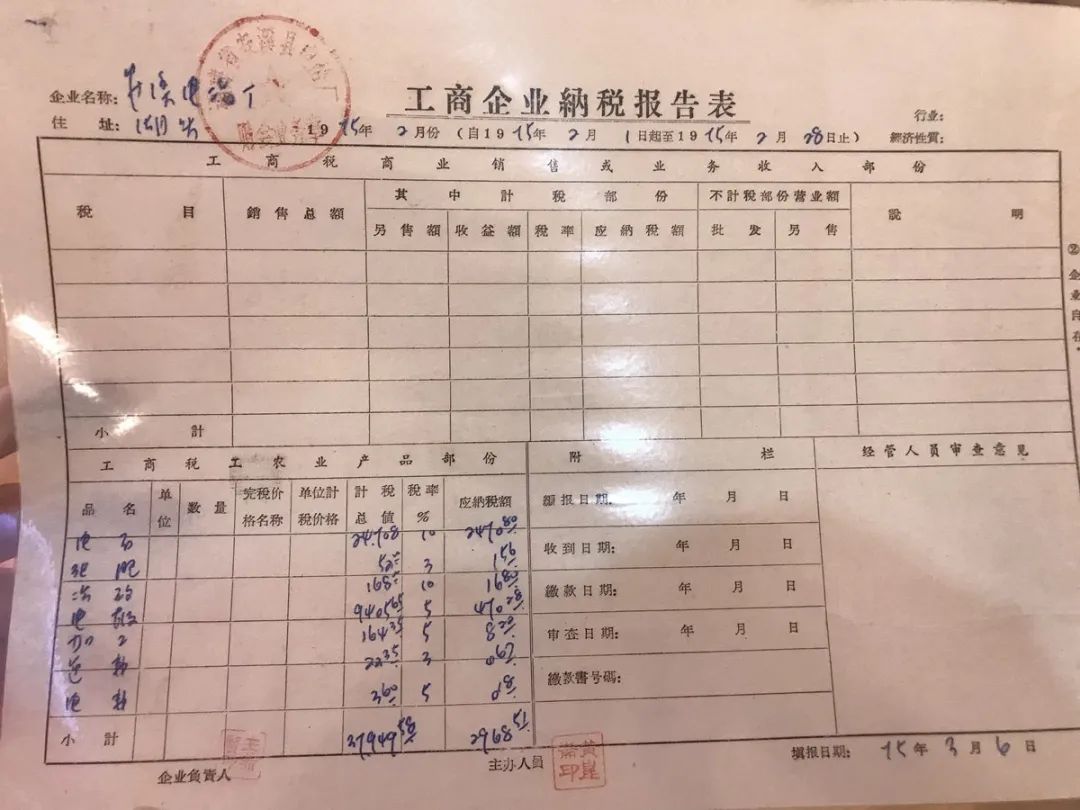 工商企业納税报告表
企业名称:
行业:
住 址: 湖头
1975年 2月份 (自1975年 2月 1日起至1975年 2月 28日止)
經济性質:
工商税商业销售或业务收入部份
税 目 銷售总額 其中計税部份 不計税部份营业额 說 明
另售額 收益額 税率 应納税額 批 发 另 售
小 計
工商税工农业产品部份 附 栏 经管人员审查意見
品 名 单位 数量 完税价格名称 单位計税价格 計税总值 税率% 应納税額
电石 24,708 10 2470.80
52 3 1.56
168 10 16.80
9405.65 5 470.28
加工 164.35 5 8.20
22.35 3 0.67
3.60 5 0.18
小 計 2968.51
填报日期: 年 月 日
收到日期: 年 月 日
繳款日期: 年 月 日
审查日期: 年 月 日
繳款書号碼:
企业負責人
主办人员
填报日期: 75年 3月 6日
②
企
业